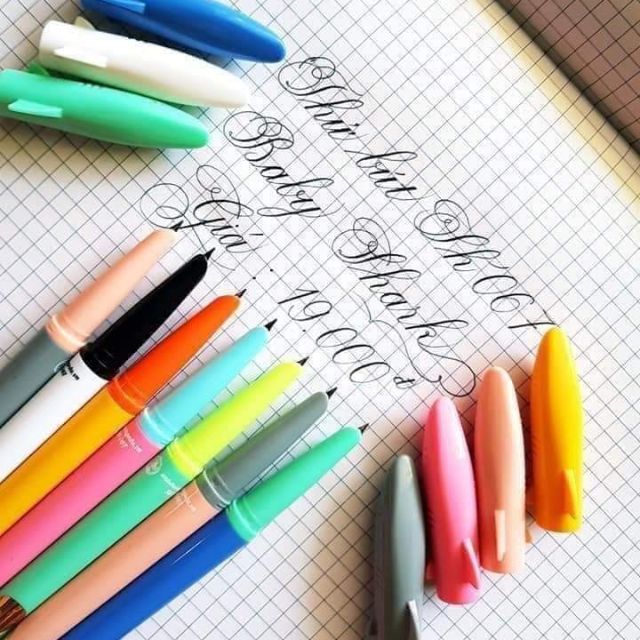 Thử bút Sh 06
Baby Shark
Giá : 19.000 đ